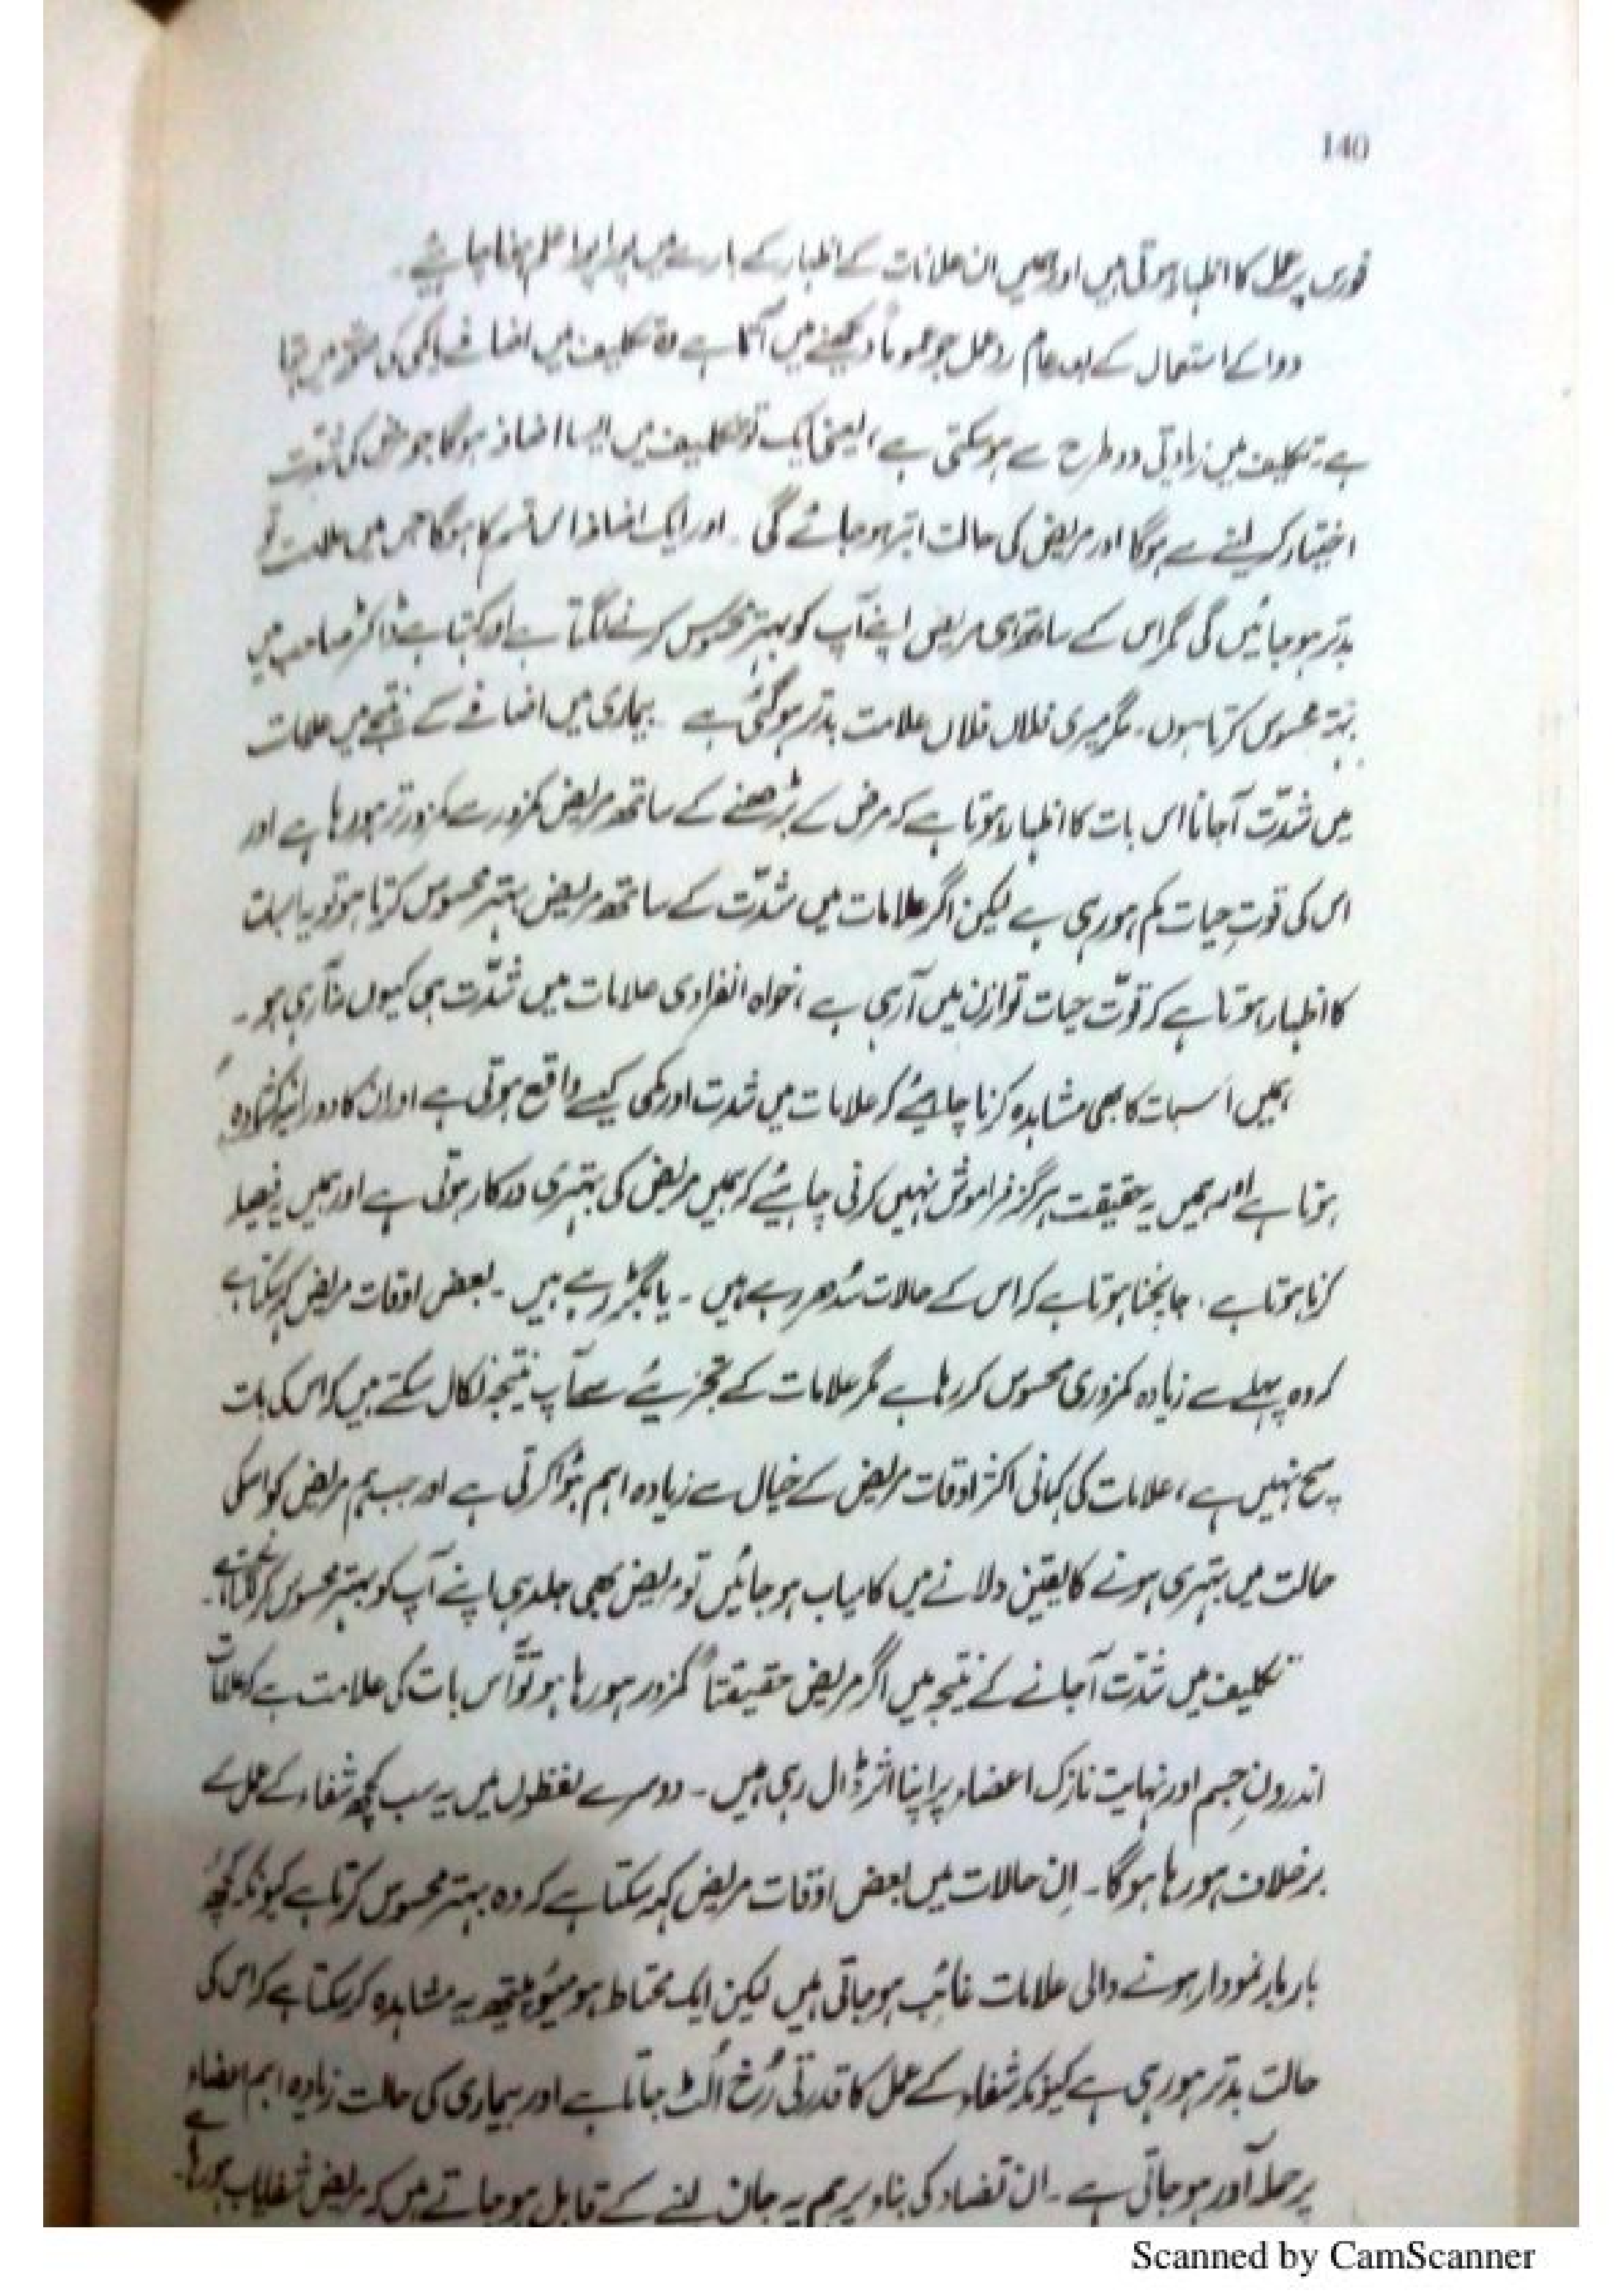 140
فورس پر عمل کا اظہار ہوتی ہیں اور ہمیں ان علامات کے اظہار کے بارے میں پورا پورا علم ہونا چاہیئے۔
دوا کے استعمال کے بعد عام ردعمل جو عموماً دیکھنے میں آتا ہے وہ تکلیف میں اضافے یا کمی کی میں ہوتا
ہے۔ تکلیف میں زیادتی دو طرح سے ہو سکتی ہے، یعنی ایک تو تکلیف میں ایسا اضافہ ہوگا جو مرض کی شدت
اختیار کر لینے سے ہوگا اور مریض کی حالت ابتر ہو جائے گی۔ اور ایک اضافہ اس قسم کا ہوگا جس میں علامات تو
بدتر ہو جائیں گی مگر اس کے ساتھ ہی مریض اپنے آپ کو بہتر محسوس کرنے لگتا ہے اور کہتا ہے ڈاکٹر صاحب میں
بہتر محسوس کرتا ہوں۔ مگر میری فلاں فلاں علامت بدتر ہو گئی ہے۔ بیماری میں اضافے کے نتیجے میں علامات
میں شدّت آجانا اس بات کا اظہار ہوتا ہے کہ مرض کے بڑھنے کے ساتھ مریض کمزور سے کمزور تر ہو رہا ہے اور
اس کی قوتِ حیات کم ہو رہی ہے لیکن اگر علامات میں شدّت کے ساتھ مریض بہتر محسوس کرتا ہو تو یہ اس بات
کا اظہار ہوتا ہے کہ قوّت حیات توازن میں آرہی ہے، خواہ انفرادی علامات میں شدّت ہی کیوں نہ آرہی ہو۔
ہمیں اس بات کا بھی مشاہدہ کرنا چاہیئے کہ علامات میں شدت اور کمی کیسے واقع ہوتی ہے اور ان کا دورانیہ کتنا
ہوتا ہے اور ہمیں یہ حقیقت ہرگز فراموش نہیں کرنی چاہیئے کہ ہمیں مریض کی بہتری درکار ہوتی ہے اور ہمیں یہ فیصلہ
کرنا ہوتا ہے، جانچنا ہوتا ہے کہ اس کے حالات سُدھر رہے ہیں۔ یا بگڑ رہے ہیں۔ بعض اوقات مریض کہہ سکتا ہے
کہ وہ پہلے سے زیادہ کمزوری محسوس کر رہا ہے مگر علامات کے تجزیئے سے آپ نتیجہ نکال سکتے ہیں کہ اس کی بات
سچ نہیں ہے، علامات کی کہانی اکثر اوقات مریض کے خیال سے زیادہ اہم ہوُا کرتی ہے اور جب ہم مریض کو اسکی
حالت میں بہتری ہونے کا یقین دلانے میں کامیاب ہو جائیں تو مریض بھی جلد ہی اپنے آپ کو بہتر محسوس کرنے لگتا ہے۔
تکلیف میں شدّت آجانے کے نتیجہ میں اگر مریض حقیقتاً کمزور ہو رہا ہو تو اس بات کی علامت ہے کہ علامات
اندرونِ جسم اور نہایت نازک اعضاء پر اپنا اثر ڈال رہی ہیں۔ دوسرے لفظوں میں یہ سب کچھ شفاء کے عمل کے
برخلاف ہو رہا ہوگا۔ اِن حالات میں بعض اوقات مریض کہہ سکتا ہے کہ وہ بہتر محسوس کرتا ہے کیونکہ کچھ
بار بار نمودار ہونے والی علامات غائب ہو جاتی ہیں لیکن ایک محتاط ہومیوپیتھ یہ مشاہدہ کر سکتا ہے کہ اس کی
حالت بدتر ہو رہی ہے کیونکہ شفاء کے عمل کا قدرتی رُخ اُلٹ جاتا ہے اور بیماری کی حالت زیادہ اہم اعضاء
پر حملہ آور ہو جاتی ہے۔ ان تضاد کی بناء پر ہم یہ جان لینے کے قابل ہو جاتے ہیں کہ مریض شفایاب ہو رہا ہے۔
Scanned by CamScanner